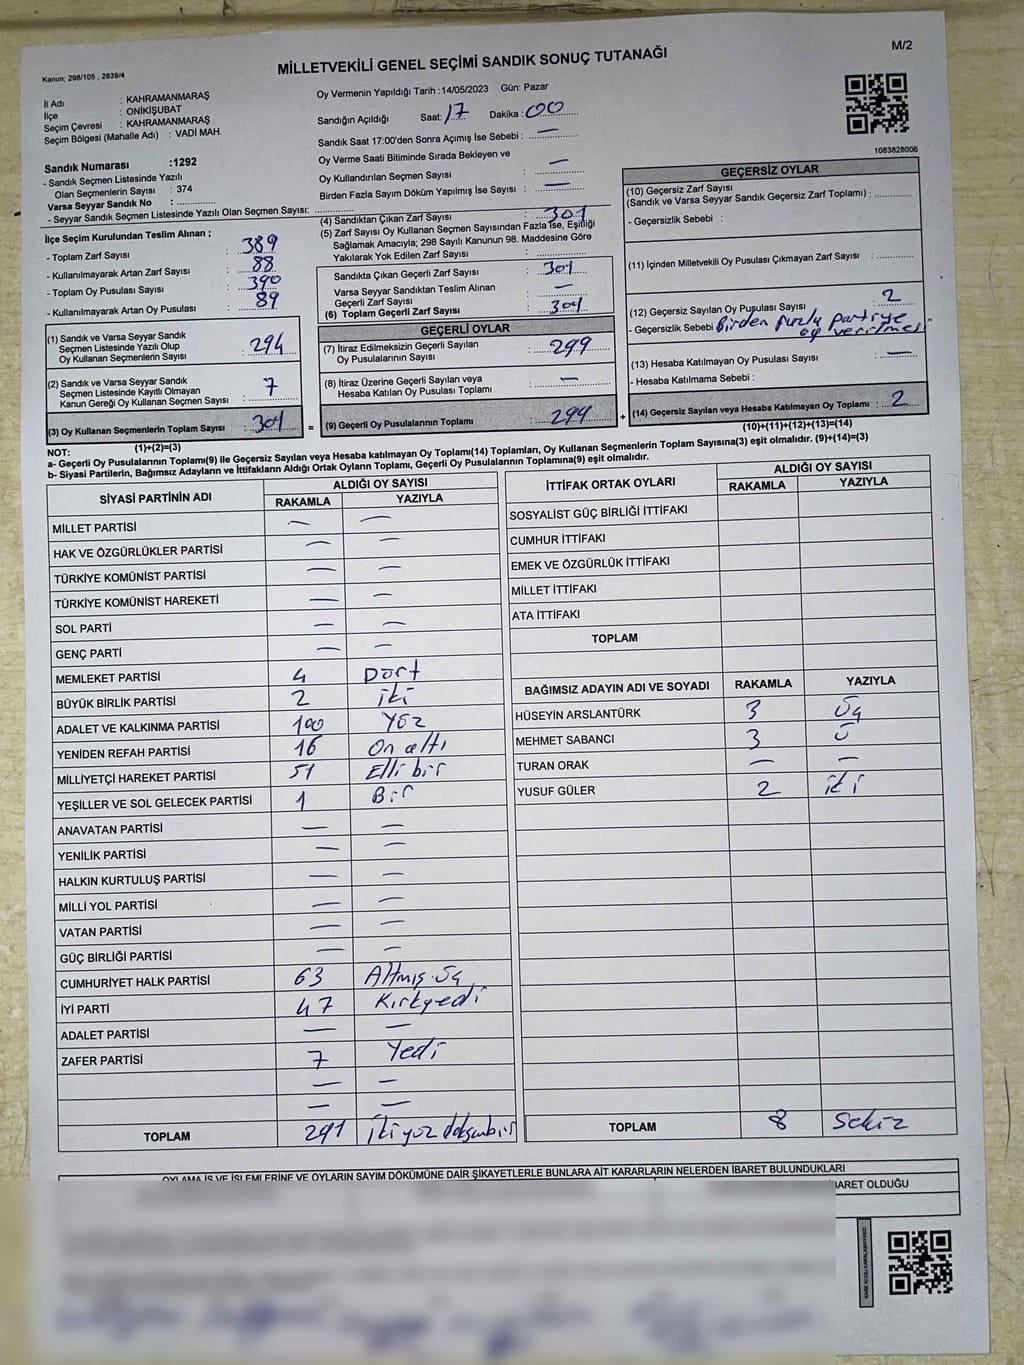 M/2
MİLLETVEKİLİ GENEL SEÇİMİ SANDIK SONUÇ TUTANAĞI
Kanun; 298/105 , 2839/4
İl Adı : KAHRAMANMARAŞ
İlçe : ONİKİŞUBAT
Seçim Çevresi : KAHRAMANMARAŞ
Seçim Bölgesi (Mahalle Adı) : VADİ MAH.
Sandık Numarası :1292
- Sandık Seçmen Listesinde Yazılı
Olan Seçmenlerin Sayısı : 374
Varsa Seyyar Sandık No :
- Seyyar Sandık Seçmen Listesinde Yazılı Olan Seçmen Sayısı:
Oy Vermenin Yapıldığı Tarih :14/05/2023 Gün: Pazar
Sandığın Açıldığı Saat: 17 Dakika : 00
Sandık Saat 17:00'den Sonra Açımış İse Sebebi : —
Oy Verme Saati Bitiminde Sırada Bekleyen ve
Oy Kullandırılan Seçmen Sayısı —
Birden Fazla Sayım Döküm Yapılmış İse Sayısı : —
1083828006
İlçe Seçim Kurulundan Teslim Alınan ;
- Toplam Zarf Sayısı : 389
- Kullanılmayarak Artan Zarf Sayısı : 88
- Toplam Oy Pusulası Sayısı : 390
- Kullanılmayarak Artan Oy Pusulası : 89
(1) Sandık ve Varsa Seyyar Sandık
Seçmen Listesinde Yazılı Olup
Oy Kullanan Seçmenlerin Sayısı : 294
(2) Sandık ve Varsa Seyyar Sandık
Seçmen Listesinde Kayıtlı Olmayan
Kanun Gereği Oy Kullanan Seçmen Sayısı : 7
(3) Oy Kullanan Seçmenlerin Toplam Sayısı : 301
(1)+(2)=(3)
(4) Sandıktan Çıkan Zarf Sayısı : 301
(5) Zarf Sayısı Oy Kullanan Seçmen Sayısından Fazla İse, Eşitliği
Sağlamak Amacıyla; 298 Sayılı Kanunun 98. Maddesine Göre
Yakılarak Yok Edilen Zarf Sayısı :
Sandıkta Çıkan Geçerli Zarf Sayısı : 301
Varsa Seyyar Sandıktan Teslim Alınan
Geçerli Zarf Sayısı : —
(6) Toplam Geçerli Zarf Sayısı : 301
GEÇERLİ OYLAR
(7) İtiraz Edilmeksizin Geçerli Sayılan
Oy Pusulalarının Sayısı : 299
(8) İtiraz Üzerine Geçerli Sayılan veya
Hesaba Katılan Oy Pusulası Toplamı : —
= (9) Geçerli Oy Pusulalarının Toplamı : 299 +
GEÇERSİZ OYLAR
(10) Geçersiz Zarf Sayısı
(Sandık ve Varsa Seyyar Sandık Geçersiz Zarf Toplamı) :
- Geçersizlik Sebebi :
(11) İçinden Milletvekili Oy Pusulası Çıkmayan Zarf Sayısı :
(12) Geçersiz Sayılan Oy Pusulası Sayısı : 2
- Geçersizlik Sebebi : Birden fazla partiye
oy verilmesi
(13) Hesaba Katılmayan Oy Pusulası Sayısı : —
- Hesaba Katılmama Sebebi :
(14) Geçersiz Sayılan veya Hesaba Katılmayan Oy Toplamı : 2
(10)+(11)+(12)+(13)=(14)
NOT:
a- Geçerli Oy Pusulalarının Toplamı(9) ile Geçersiz Sayılan veya Hesaba katılmayan Oy Toplamı(14) Toplamları, Oy Kullanan Seçmenlerin Toplam Sayısına(3) eşit olmalıdır. (9)+(14)=(3)
b- Siyasi Partilerin, Bağımsız Adayların ve İttifakların Aldığı Ortak Oyların Toplamı, Geçerli Oy Pusulalarının Toplamına(9) eşit olmalıdır.
SİYASİ PARTİNİN ADI ALDIĞI OY SAYISI
RAKAMLA YAZIYLA
MİLLET PARTİSİ — —
HAK VE ÖZGÜRLÜKLER PARTİSİ — —
TÜRKİYE KOMÜNİST PARTİSİ — —
TÜRKİYE KOMÜNİST HAREKETİ — —
SOL PARTİ — —
GENÇ PARTİ — —
MEMLEKET PARTİSİ 4 Dört
BÜYÜK BİRLİK PARTİSİ 2 iki
ADALET VE KALKINMA PARTİSİ 100 Yüz
YENİDEN REFAH PARTİSİ 16 On altı
MİLLİYETÇİ HAREKET PARTİSİ 51 Elli bir
YEŞİLLER VE SOL GELECEK PARTİSİ 1 Bir
ANAVATAN PARTİSİ — —
YENİLİK PARTİSİ — —
HALKIN KURTULUŞ PARTİSİ — —
MİLLİ YOL PARTİSİ — —
VATAN PARTİSİ — —
GÜÇ BİRLİĞİ PARTİSİ — —
CUMHURİYET HALK PARTİSİ 63 Altmış üç
İYİ PARTİ 47 Kırkyedi
ADALET PARTİSİ — —
ZAFER PARTİSİ 7 Yedi
— —
— —
TOPLAM 291 ikiyüz doksanbir
İTTİFAK ORTAK OYLARI ALDIĞI OY SAYISI
RAKAMLA YAZIYLA
SOSYALİST GÜÇ BİRLİĞİ İTTİFAKI
CUMHUR İTTİFAKI
EMEK VE ÖZGÜRLÜK İTTİFAKI
MİLLET İTTİFAKI
ATA İTTİFAKI
TOPLAM
BAĞIMSIZ ADAYIN ADI VE SOYADI RAKAMLA YAZIYLA
HÜSEYİN ARSLANTÜRK 3 Üç
MEHMET SABANCI 3 Ü
TURAN ORAK — —
YUSUF GÜLER 2 iki
TOPLAM 8 Sekiz
OYLAMA İŞ VE İŞLEMLERİNE VE OYLARIN SAYIM DÖKÜMÜNE DAİR ŞİKAYETLERLE BUNLARA AİT KARARLARIN NELERDEN İBARET BULUNDUKLARI
BARET OLDUĞU